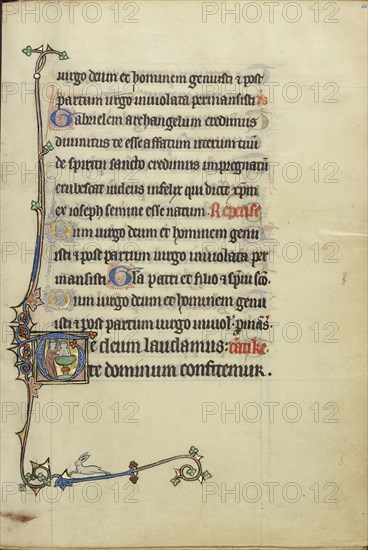 uirgo deum et hominem genuisti ⁊ post
partum uirgo inuiolata permansisti
Gabrielem archangelum credimus
diuinitus te esse affatum uterum tuũ
de spiritu sancto credimus impregnatũ
erubescat iudeus infelix qui dicit xpm̃
ex ioseph semine esse natum. Repense
Dum uirgo deum et hominem genu
isti ⁊ post partum uirgo inuiolata per
mansisti Gl̃a patri et filio ⁊ spũi sc̃o.
Dum uirgo deum et hominem genu
isti ⁊ post partum uirgo inuiol'
Te deum laudamus:
te dominum confitemur.
PHOTO12